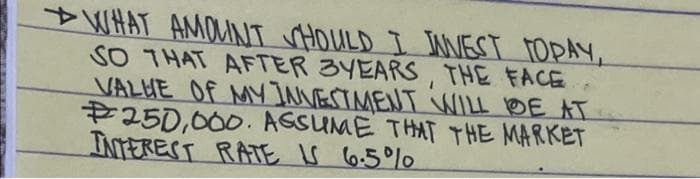 → WHAT AMOUNT SHOULD I INVEST TODAY,
SO THAT AFTER 3YEARS, THE FACE
VALUE OF MY INVESTMENT WILL BE AT
₱250,000. ASSUME THAT THE MARKET
INTEREST RATE IS 6.5%